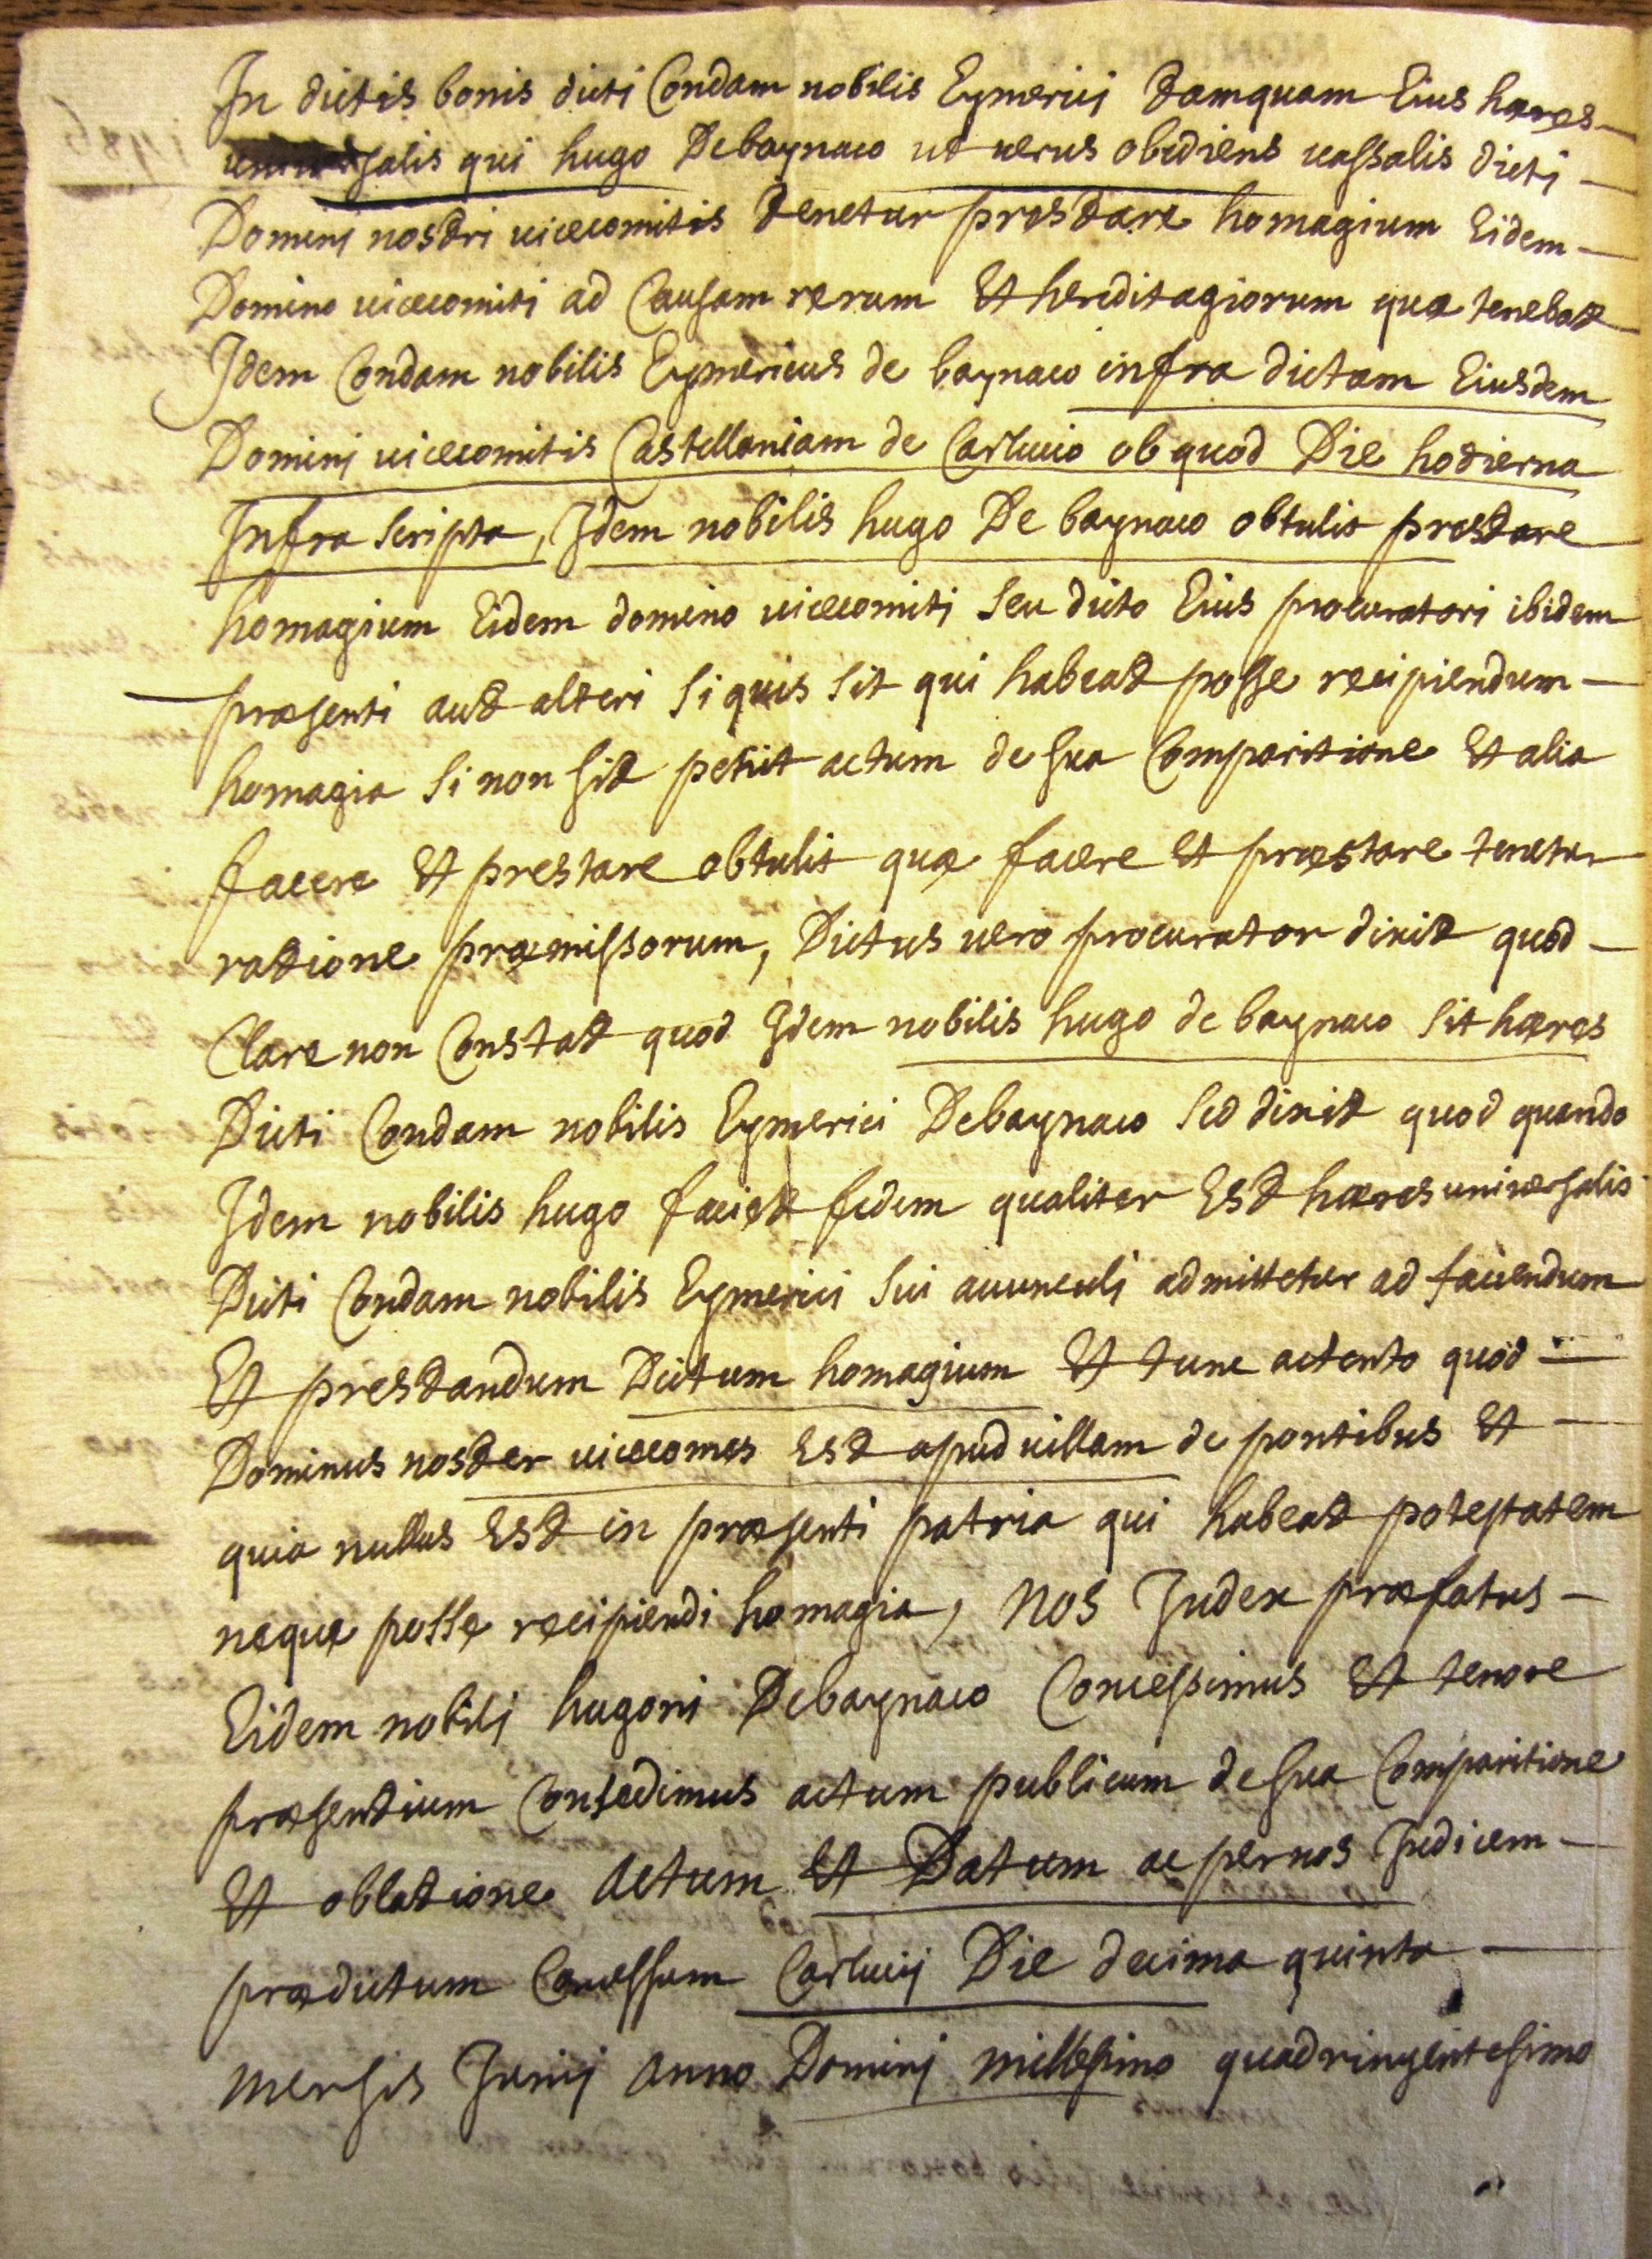 In dictis bonis dicti Condam nobilis Eymerici tamquam Eius hæres
universalis qui hugo Debaynaco ut verus obediens vassalis dicti
Domini nostri vicecomitis tenetur prestare homagium Eidem
Domino vicecomiti ad Causam rerum Et hereditagiorum quæ tenebat
Idem Condam nobilis Eymericus de baynaco infra dictam Eiusdem
Domini vicecomitis Castellaniam de Carlucio ob quod Die hodierna
Infra scripta, Idem nobilis hugo De baynaco obtulit prestare
homagium Eidem domino vicecomiti seu dicto Eius procuratori ibidem
præsenti aut alteri si quis sit qui habeat posse recipiendum
homagia si non sit petiit actum de sua Comparitione Et alia
facere Et prestare obtulit quæ facere Et præstare tenetur
ratione præmissorum, Dictus vero procurator dixit quod
Clare non Constat quod Idem nobilis hugo de baynaco sit hæres
Dicti Condam nobilis Eymerici Debaynaco sed dixit quod quando
Idem nobilis hugo faciet fidem qualiter Est hæres universalis
Dicti Condam nobilis Eymerici sui avunculi admittetur ad faciendum
Et prestandum Dictum homagium Et tunc actento quod
Dominus noster vicecomes Est apud villam de pontibus Et
quia nullus Est in præsenti patria qui habeat potestatem
neque posse recipiendi homagia, nos Judex præfatus
Eidem nobili hugoni Debaynaco Concessimus Et tenore
præsentium Concedimus actum publicum de sua Comparitione
Et oblatione Actum Et Datum ac per nos Judicem
prædictum Concessum Carlucij Die decima quinta
mensis Junij anno Domini millesimo quadringentesimo